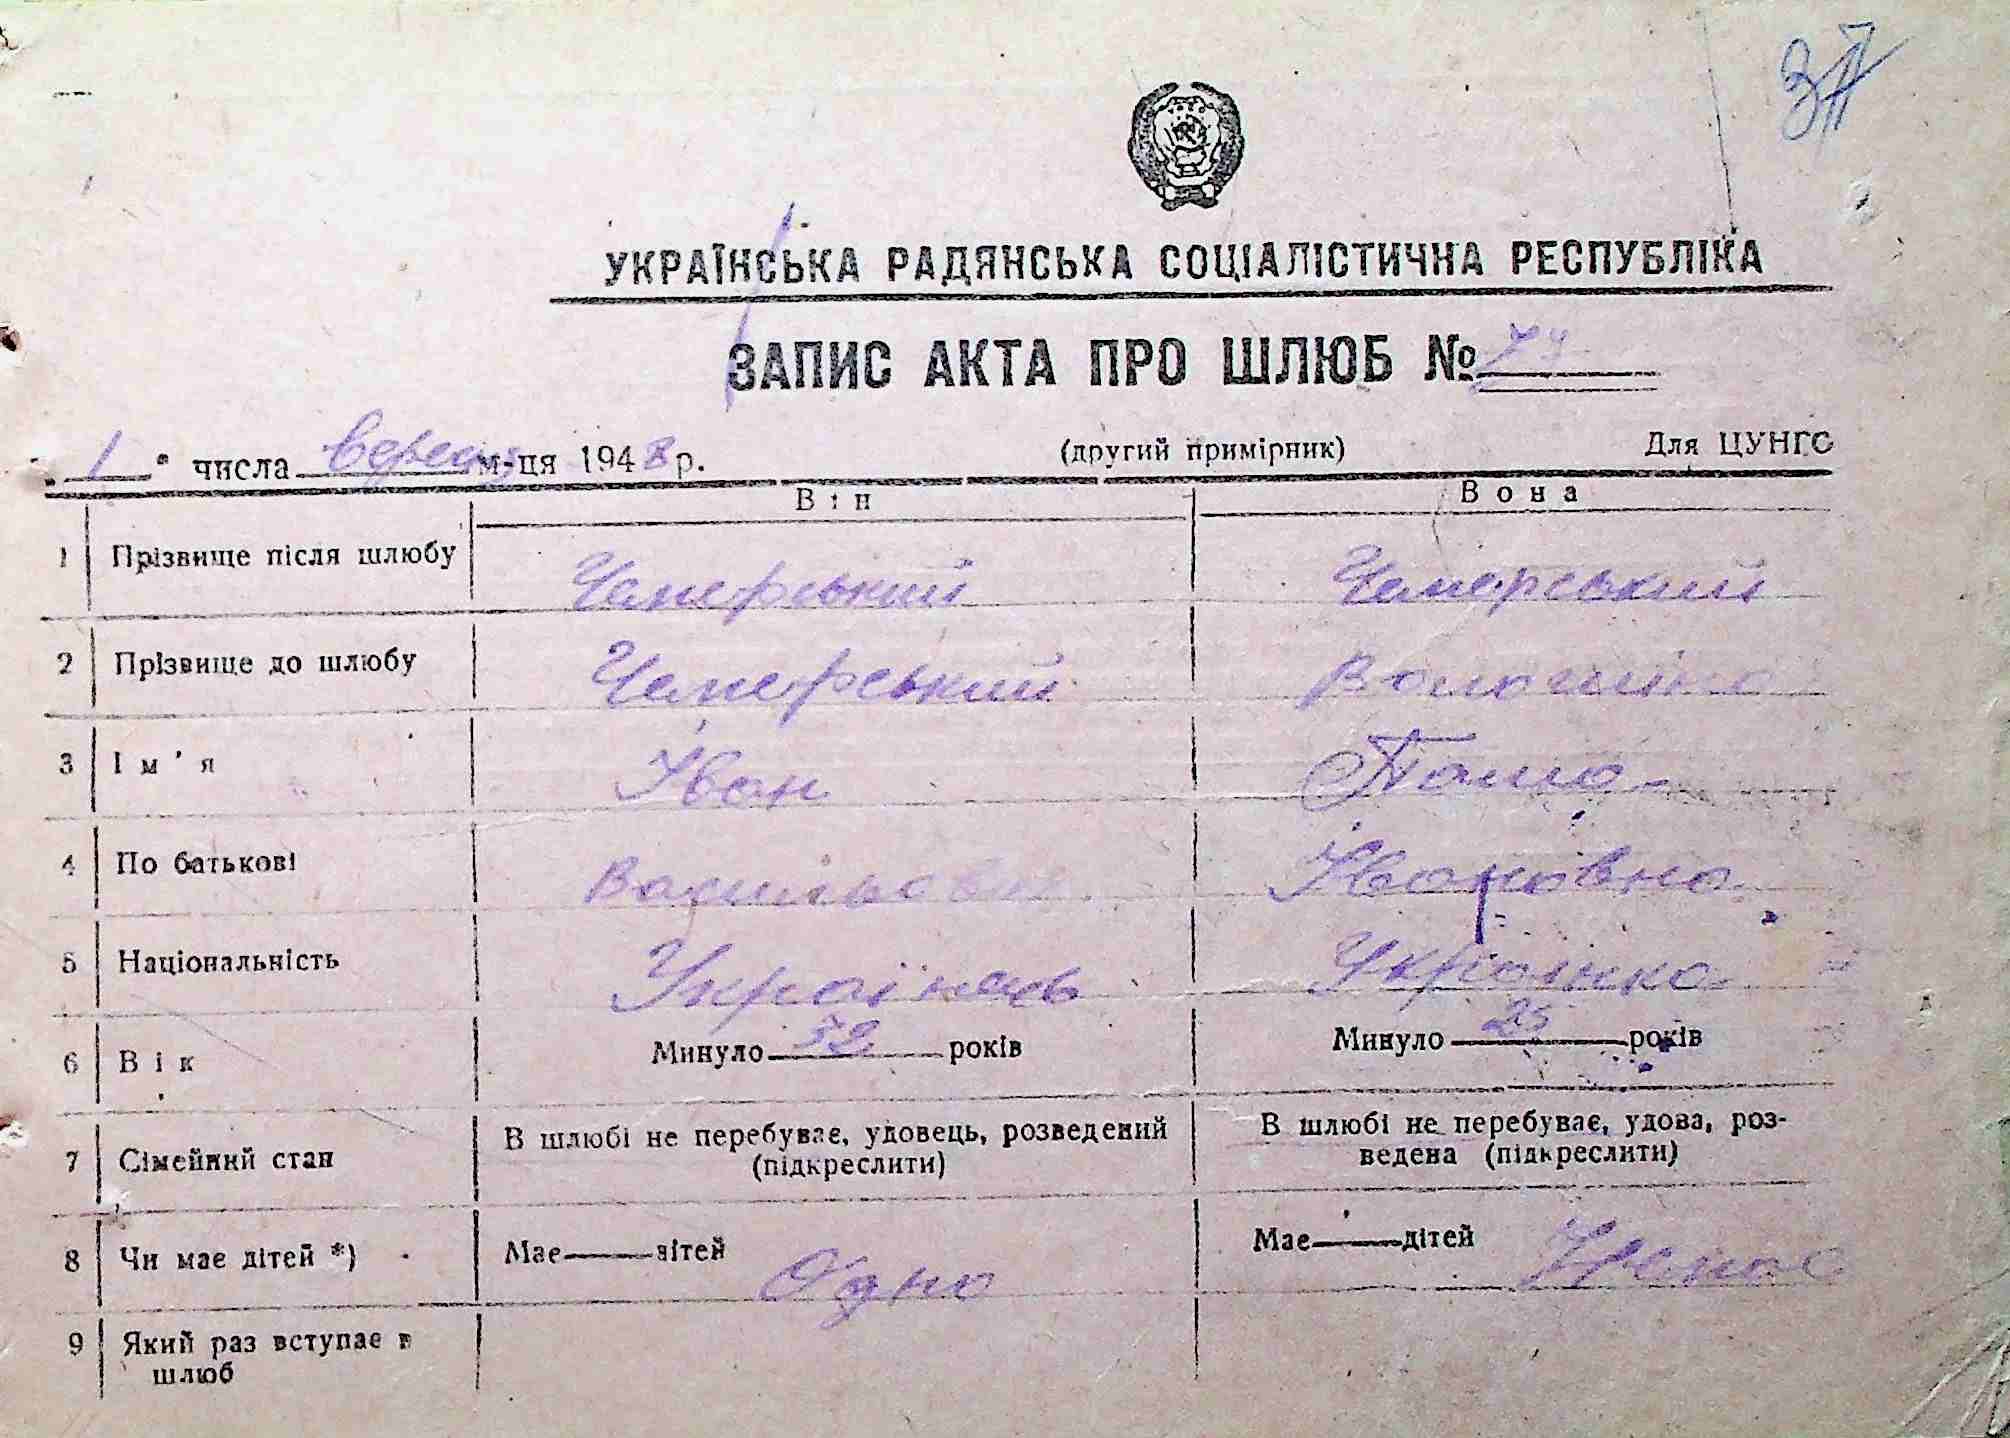 37
УКРАЇНСЬКА РАДЯНСЬКА СОЦІАЛІСТИЧНА РЕСПУБЛІКА
ЗАПИС АКТА ПРО ШЛЮБ № 74
„1" числа верес м-ця 1948 р. (другий примірник) Для ЦУНГС
Він Вона
1 Прізвище після шлюбу Чемерський Чемерський
2 Прізвище до шлюбу Чемерський Волошина
3 Ім'я Іван
4 По батькові Васильович Івановна
5 Національність Українець Українка
6 Вік Минуло 52 років Минуло 25 років
7 Сімейний стан В шлюбі не перебуває, удовець, розведений (підкреслити) В шлюбі не перебуває, удова, роз-
ведена (підкреслити)
8 Чи має дітей *) Має дітей Одно Має дітей Немає
9 Який раз вступає в
шлюб